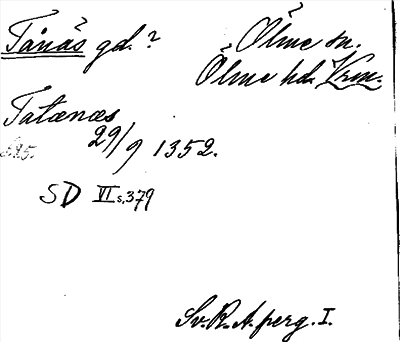 Tånås gd. ?
Ölme sn.
Ölme hd. Vrm.
Tatænæs
29/9 1352.
SD VI s. 379
Sv. R. A. perg. I.